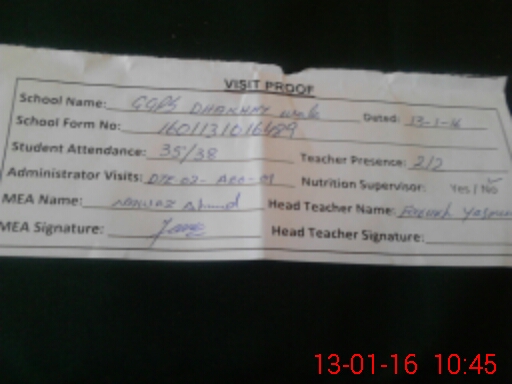 VISIT PROOF
School Name: GGPS DHAKHAY Wala Dated: 13-1-16
School Form No:
Student Attendance: 35/38 Teacher Presence: 2/2
Administrator Visits: DTE-02- AEO-01 Nutrition Supervisor: Yes / No
MEA Name: Nawaz Ahmad Head Teacher Name:
MEA Signature: Head Teacher Signature:
13-01-16 10:45